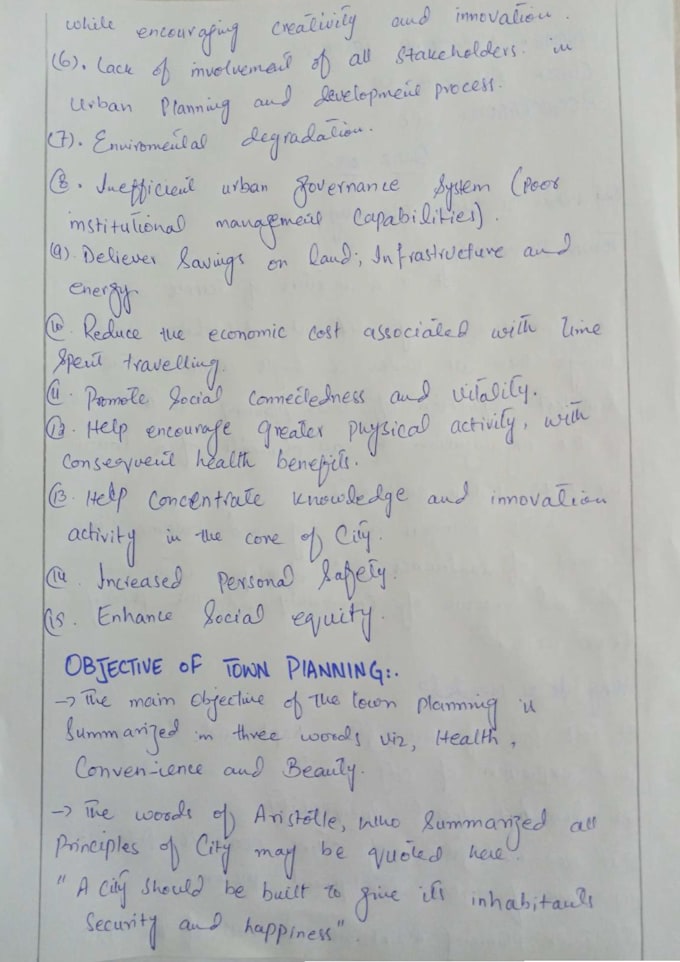 while encouraging creativity and innovation.
(6). Lack of involvement of all stakeholders in
Urban Planning and development process.
(7). Enviromental degradation.
(8. Inefficient urban governance system (poor
institutional management capabilities).
(9). Deliever Savings on land; Infrastructure and
energy.
(10. Reduce the economic cost associated with time
spent travelling.
(11. Promote Social connectedness and vitality.
(12. Help encourage greater physical activity, with
consequent health benefits.
(13. Help concentrate knowledge and innovation
activity in the core of City.
(14. Increased Personal Safety.
(15. Enhance Social equity.
OBJECTIVE OF TOWN PLANNING:.
→ The main objective of the town planning is
summarized in three words viz, Health,
Convenience and Beauty.
→ The words of Aristotle, who summarized all
Principles of City may be quoted here.
" A city should be built to give its inhabitants
security and happiness".